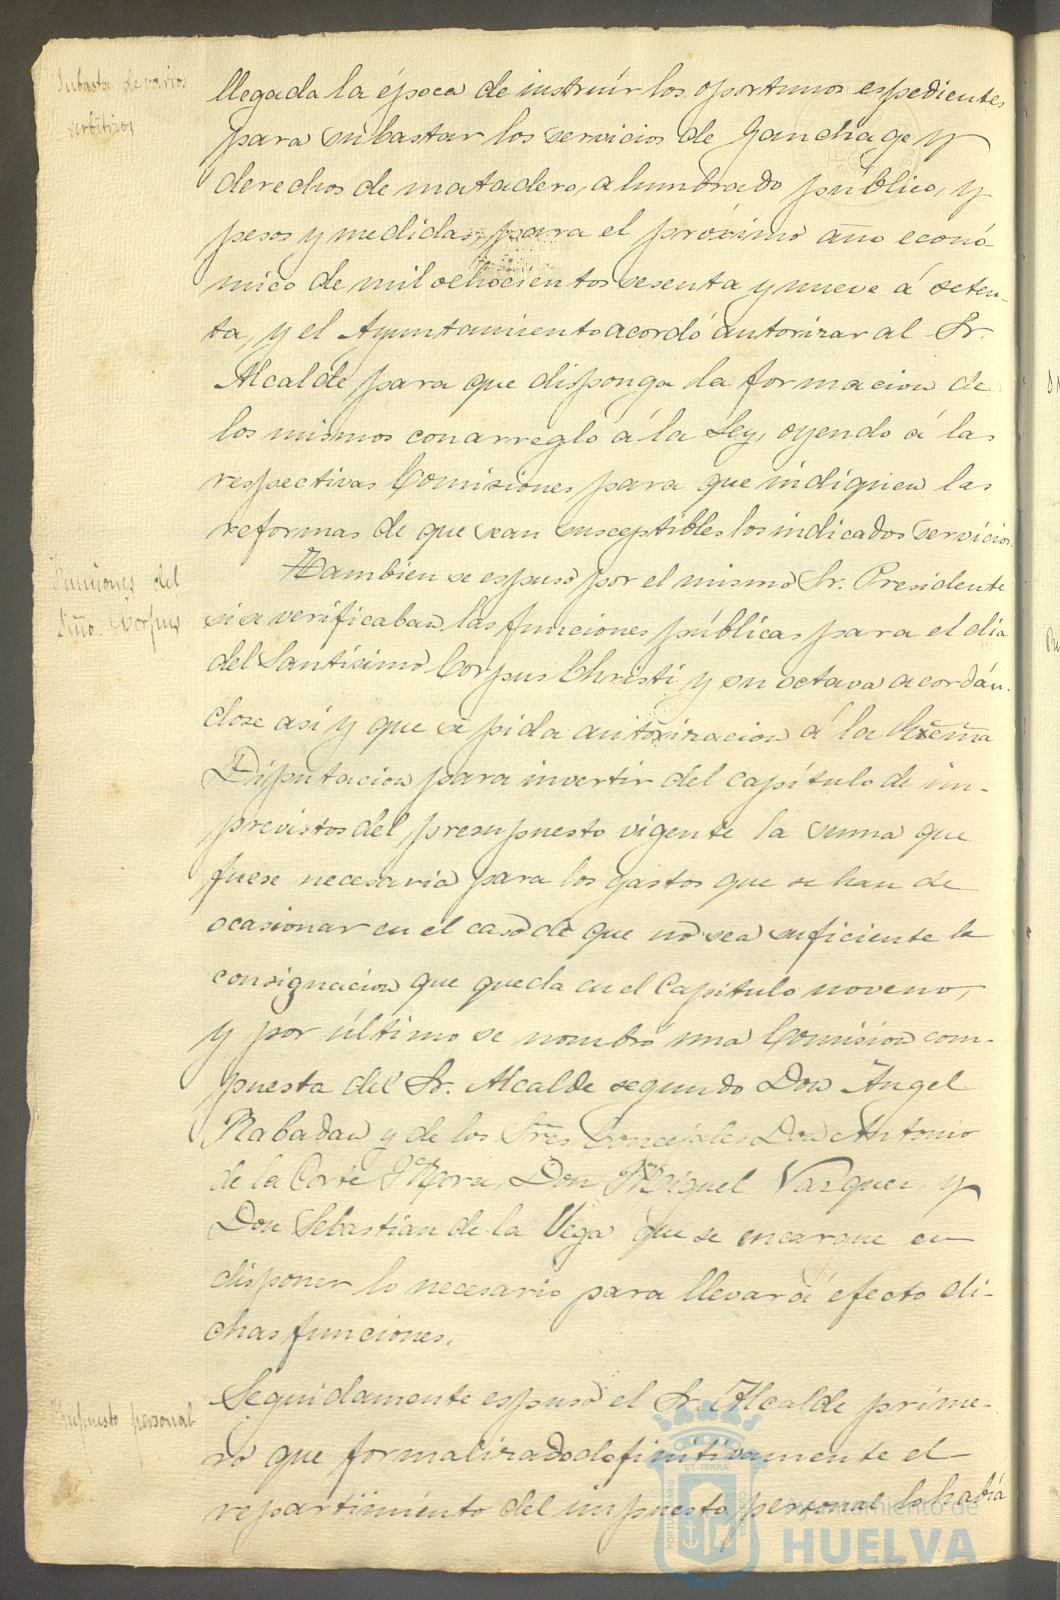 Subasta de varios
arbitrios
llegada la época de instruir los oportunos espedientes
para subastar los servicios de Ganchage y
derechos de matadero, alumbrado público, y
pesos y medidas, para el próximo año econó-
mico de mil ochocientos sesenta y nueve á seten-
ta, y el Ayuntamiento acordó autorizar al Sr.
Alcalde para que disponga la formacion de
los mismos con arreglo á la Ley, oyendo á las
respectivas Comisiones para que indiquen las
reformas de que sean susceptibles los indicados servicios.
Funciones del
Ssño. Corpus
Tambien se espuso por el mismo Sr. Presidente
si se verificaban las funciones públicas para el dia
del Santísimo Corpus Christi y su octava acordán-
dose así y que se pida autorizacion á la Excma
Diputacion para invertir del capítulo de im-
previstos del presupuesto vigente la suma que
fuese necesaria para los gastos que se han de
ocasionar en el caso de que no sea suficiente la
consignacion que queda en el Capitulo noveno,
y por último se nombró una Comision com-
puesta del Sr. Alcalde segundo Don Ángel
Rabadan y de los Sres Concejales Don Antonio
de la Corte y Mora, Don Miguel Vazquez, y
Don Sebastian de la Vega que se encargue en
disponer lo necesario para llevar á efecto di-
chas funciones.
Impuesto personal
Seguidamente espuso el Sr. Alcalde prime-
ro que formalizado definitivamente el
repartimiento del impuesto personal lo habia
Ayuntamiento de
HUELVA